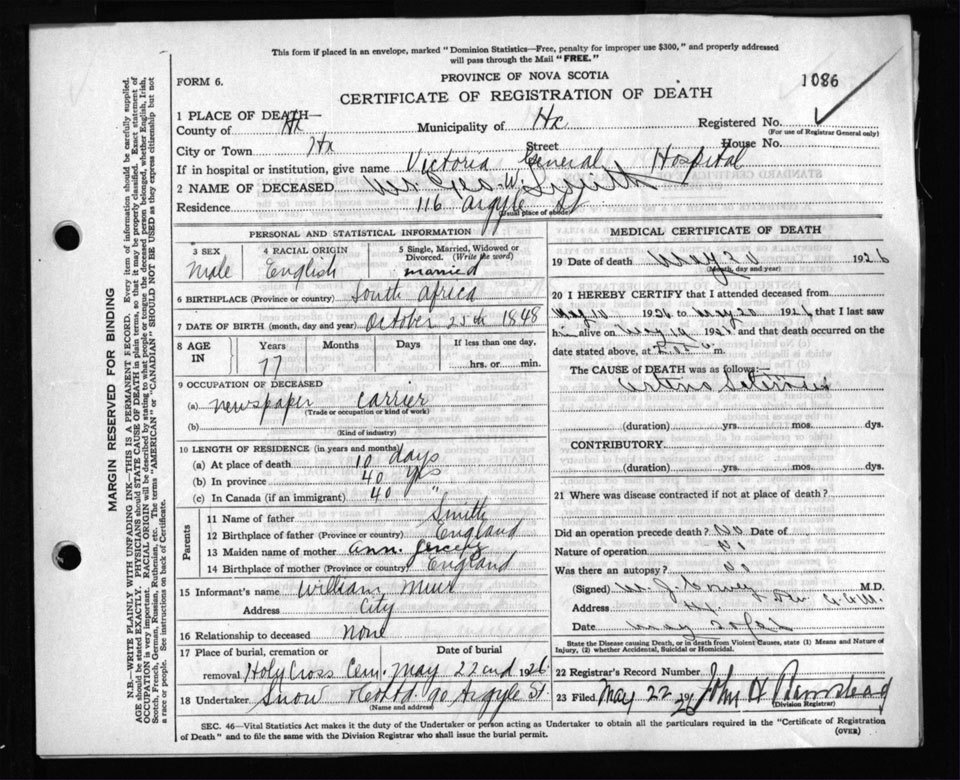 This form if placed in an envelope, marked "Dominion Statistics—Free, penalty for improper use $300," and properly addressed
will pass through the Mail "FREE."
FORM 6.
PROVINCE OF NOVA SCOTIA
1086
CERTIFICATE OF REGISTRATION OF DEATH
1 PLACE OF DEATH—
County of Hx Municipality of Hx Registered No.
(For use of Registrar General only)
City or Town Hx Street House No.
If in hospital or institution, give name Victoria General Hospital
2 NAME OF DECEASED Geo. W. Smith
Residence 116 Argyle St
(Usual place of abode)
PERSONAL AND STATISTICAL INFORMATION
3 SEX 4 RACIAL ORIGIN 5 Single, Married, Widowed or Divorced. (Write the word)
Male English married
6 BIRTHPLACE (Province or country) South Africa
7 DATE OF BIRTH (month, day and year) October 25th 1848
8 AGE IN Years Months Days If less than one day,
77 hrs. or min.
9 OCCUPATION OF DECEASED
(a) newspaper carrier
(Trade or occupation or kind of work)
(b)
(Kind of industry)
10 LENGTH OF RESIDENCE (in years and months)
(a) At place of death 10 days
(b) In province 40 yrs
(c) In Canada (if an immigrant) 40 "
Parents
11 Name of father Smith
12 Birthplace of father (Province or country) England
13 Maiden name of mother Ann.
14 Birthplace of mother (Province or country) England
15 Informant's name William Muir
Address City
16 Relationship to deceased None
17 Place of burial, cremation or removal Date of burial
Holy Cross Cem. May 22nd 1926
18 Undertaker Snow & Co Ltd 90 Argyle St.
(Name and address)
MEDICAL CERTIFICATE OF DEATH
19 Date of death May 20 1926
(Month, day and year)
20 I HEREBY CERTIFY that I attended deceased from
May 10 1926 to May 20 1926 that I last saw
him alive on May 19 1926 and that death occurred on the
date stated above, at m.
The CAUSE of DEATH was as follows:—
Arterio Sclerosis
(duration) yrs. mos. dys.
CONTRIBUTORY
(duration) yrs. mos. dys.
21 Where was disease contracted if not at place of death?
Did an operation precede death? No Date of
Nature of operation
Was there an autopsy? No
(Signed) M.D.
Address Hx.
Date May 20/26
State the Disease causing Death, or in death from Violent Causes, state (1) Means and Nature of
Injury, (2) whether Accidental, Suicidal or Homicidal.
22 Registrar's Record Number
23 Filed May 22 1926 John H
(Division Registrar)
SEC. 46—Vital Statistics Act makes it the duty of the Undertaker or person acting as Undertaker to obtain all the particulars required in the "Certificate of Registration
of Death" and to file the same with the Division Registrar who shall issue the burial permit.
(OVER)
MARGIN RESERVED FOR BINDING
N.B.—WRITE PLAINLY WITH UNFADING INK—THIS IS A PERMANENT RECORD. Every item of information should be carefully supplied.
AGE should be stated EXACTLY. PHYSICIANS should STATE CAUSE OF DEATH in plain terms, so that it may be properly classified. Exact statement of
OCCUPATION is very important. RACIAL ORIGIN will be described by stating to what people or tongue the deceased person belonged, whether English, Irish,
Scotch, French, German, Russian, Ruthenian, etc. The terms "AMERICAN" or "CANADIAN" SHOULD NOT BE USED as they express citizenship but not
a race or people. See instructions on back of Certificate.